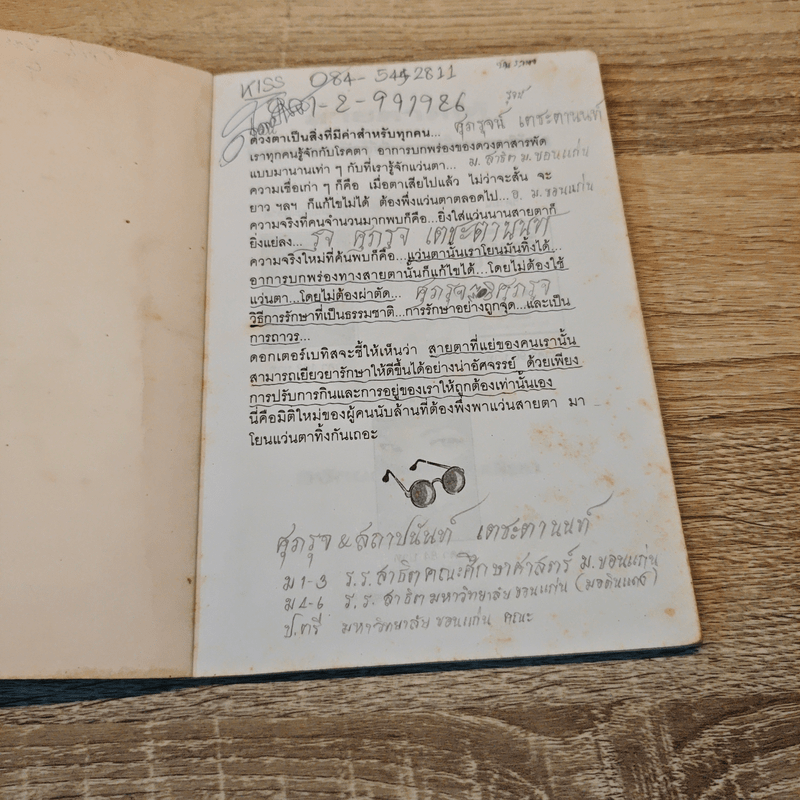 KISS 084-5452811
1-2-991986
ศุภรุจน์ เตชะตานนท์
ดวงตาเป็นสิ่งที่มีค่าสำหรับทุกคน...
เราทุกคนรู้จักกับโรคตา อาการบกพร่องของดวงตาสารพัด
แบบมานานเท่า ๆ กับที่เรารู้จักแว่นตา... ม. สาธิต ม. ขอนแก่น
ความเชื่อเก่า ๆ ก็คือ เมื่อตาเสียไปแล้ว ไม่ว่าจะสั้น จะ
ยาว ฯลฯ ก็แก้ไขไม่ได้ ต้องพึ่งแว่นตาตลอดไป... ม. ขอนแก่น
ความจริงที่คนจำนวนมากพบก็คือ...ยิ่งใส่แว่นนานสายตาก็
ยิ่งแย่ลง... รุจ ศุภรุจ เตชะตานนท์
ความจริงใหม่ที่ค้นพบก็คือ...แว่นตานั้นเราโยนมันทิ้งได้...
อาการบกพร่องทางสายตานั้นก็แก้ไขได้...โดยไม่ต้องใช้
แว่นตา...โดยไม่ต้องผ่าตัด... ศุภรุจ ศุภรุจ
วิธีการรักษาที่เป็นธรรมชาติ...การรักษาอย่างถูกจุด...และเป็น
การถาวร...
ดอกเตอร์เบทิสจะชี้ให้เห็นว่า สายตาที่แย่ของคนเรานั้น
สามารถเยียวยารักษาให้ดีขึ้นได้อย่างน่าอัศจรรย์ ด้วยเพียง
การปรับการกินและการอยู่ของเราให้ถูกต้องเท่านั้นเอง
นี่คือมิติใหม่ของผู้คนนับล้านที่ต้องพึ่งพาแว่นสายตา มา
โยนแว่นตาทิ้งกันเถอะ
ศุภรุจ & สถาปนันท์ เตชะตานนท์
ม 1-3 ร.ร. สาธิตคณะศึกษาศาสตร์ ม. ขอนแก่น
ม 4-6 ร.ร. สาธิตมหาวิทยาลัยขอนแก่น (มอดินแดง)
ป.ตรี มหาวิทยาลัยขอนแก่น คณะ